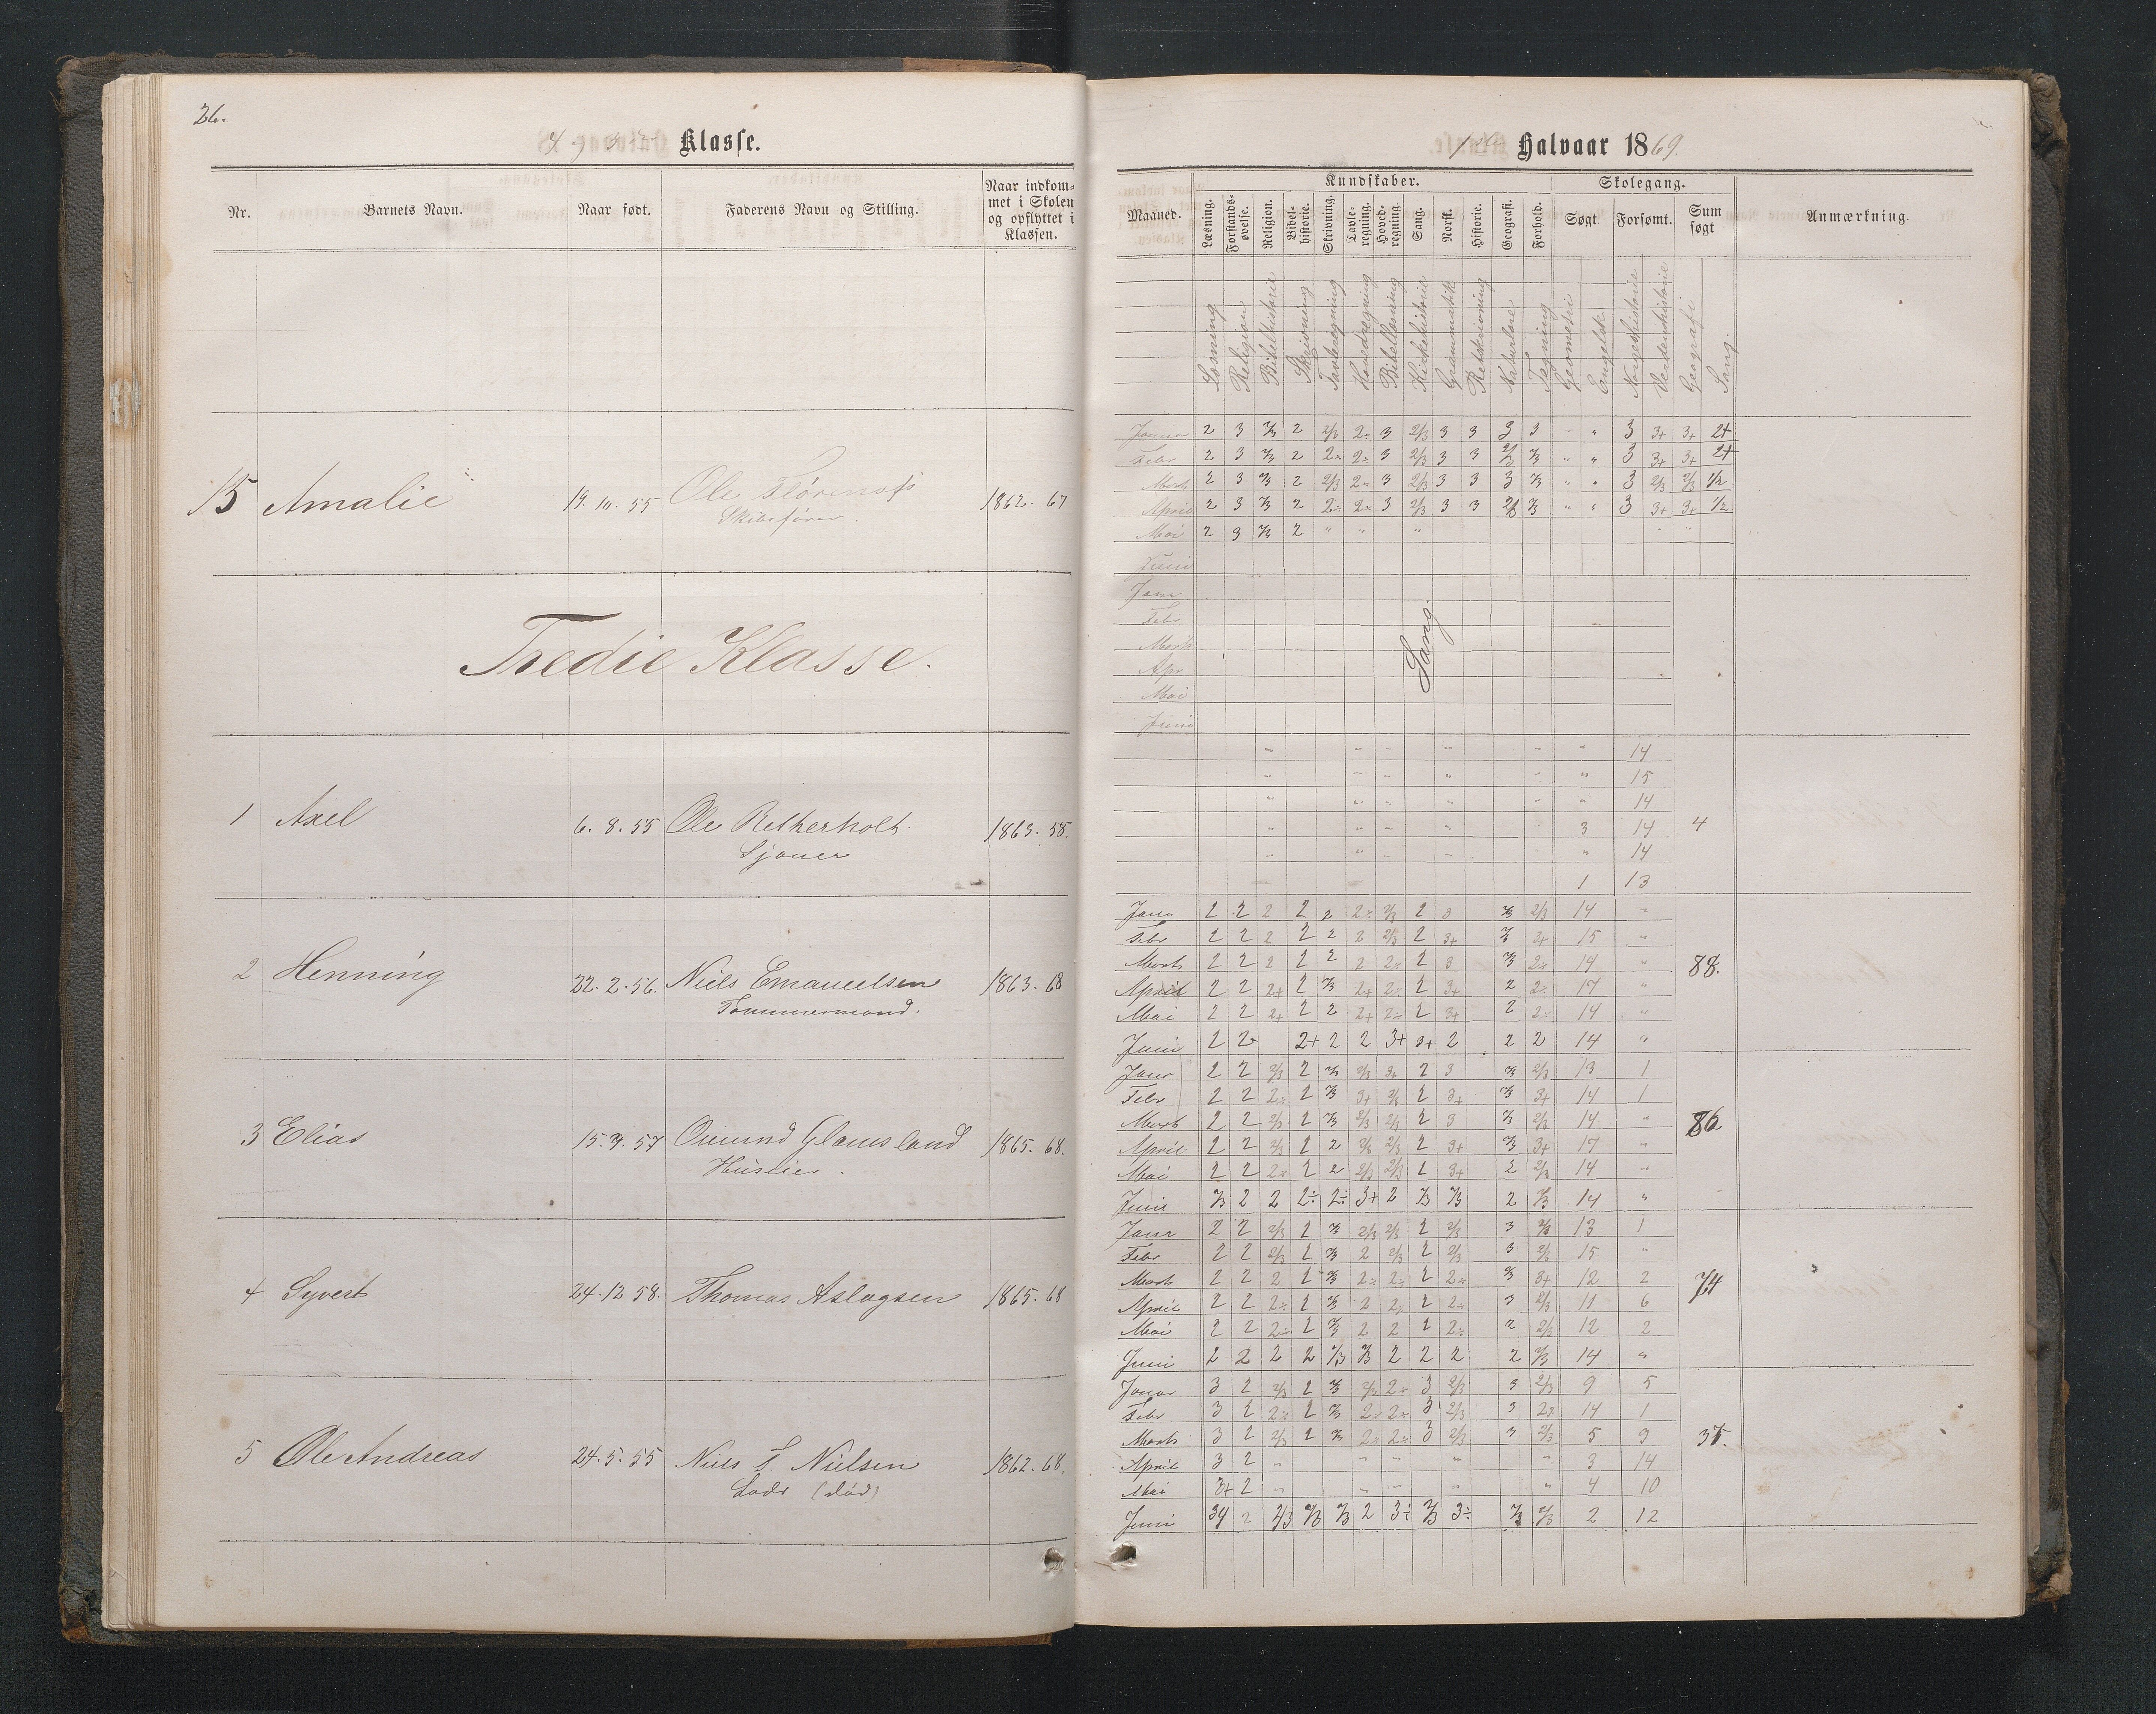 26.
Klasse.
Nr. Barnets Navn. Naar født. Faderens Navn og Stilling. Naar indkom-
met i Skolen
og opflyttet i
Klassen.
15 Amalie 19. 10. 55 Ole 1862. 67
Skibsfører.
Tredie Klasse.
1 Axel 6. 8. 55 Ole 1863. 58.
Sjouer
2 Henning 22. 2. 56. Niels Emanuelsen 1863. 68
Tømmermand.
3 Elias 15. 9. 57 Omund Glamsland 1865. 68.
Huseier.
4 Syvert 24. 12 58. Thomas Aslagsen 1865. 68
5 Ole Andreas 24. 5. 55 Niels S. Nielsen 1862. 68.
Lods (død)
1ste Halvaar 1869.
Maaned. Kundskaber. Skolegang. Anmærkning.
Læsning. Forstands-
øvelse. Religion. Bibel-
historie. Skrivning. Tavle-
regning. Hoved-
regning. Sang. Norsk. Historie. Geografi. Forhold. Søgt Forsømt. Sum
søgt
Læsning Religion Bibelhistorie Skrivning Tavleregning Hovedregning Bibellæsning Kirkehistorie Grammatik Retskrivning Naturlære Tegning Geometri Engelsk Norgeshistorie Verdenshistorie Geografi Sang
Januar 2 3 2/3 2 2/3 2÷ 3 2/3 3 3 3 3 " " 3 3+ 3+ 2+
Febr 2 3 2/3 2 2÷ 2÷ 3 2/3 3 3 2/3 2/3 " " 3 3+ 3+ 2+
Marts 2 3 2/3 2 2/3 2÷ 3 2/3 3 3 3 2/3 " " 3 2/3 2/3 1/2
April 2 3 2/3 2 2÷ 2÷ 3 2/3 3 3 2/3 2/3 " " 3 3+ 3+ 1/2
Mai 2 3 2/3 2 " " "
Juni
Janr
Febr
Marts
Apr
Mai
Juni
Sang.
" 14
" 15
" 14
3 14 4
" 14
1 13
Janr 2 2 2 2 2 2÷ 2/3 2 3 2/3 2/3 14 "
Febr 2 2 2 2 2 2 2/3 2 3+ 2/3 3+ 15 "
Marts 2 2 2 2 2 2 2÷ 2 3 2/3 2÷ 14 " 88.
April 2 2 2+ 2 2/3 2+ 2÷ 2 3+ 2 2÷ 17 "
Mai 2 2 2+ 2 2 2+ 2÷ 2 3+ 2 2÷ 14 "
Juni 2 2+ 2+ 2 2 3+ 3+ 2 2 2 14 "
Janr 2 2 2/3 2 2/3 2/3 3+ 2 3 2/3 2/3 13 1
Febr 2 2 2÷ 2 2/3 3+ 2/3 2 3+ 2/3 3+ 14 1
Marts 2 2 2/3 2 2/3 2/3 2/3 2 3 2/3 2/3 14 " 86
April 2 2 2/3 2 2 2/3 2/3 2 3+ 2/3 3+ 17 "
Mai 2 2 2÷ 2 2 2/3 2/3 2 3+ 2 2/3 14 "
Juni 2/3 2 2 2÷ 2÷ 3+ 2 2/3 2/3 2 2/3 14 "
Janr 2 2 2/3 2 2/3 2/3 2/3 2 2/3 3 2/3 13 1
Febr 2 2 2/3 2 2/3 2 2/3 2 2/3 3 2/3 15 "
Marts 2 2 2 2 2/3 2÷ 2÷ 2 2÷ 2/3 3+ 12 2 74
April 2 2 2÷ 2 2/3 2 2÷ 2 2÷ 3 2/3 11 6
Mai 2 2 2÷ 2 2/3 2 2 2 2÷ 2 2/3 12 2
Juni 2 2 2 2 2/3 2/3 2 2 2 2 2/3 14 "
Januar 3 2 2/3 2 2/3 2/3 2÷ 3 2/3 3 2/3 9 5
Febr 3 2 2÷ 2 2/3 2÷ 2÷ 3 2/3 3 2÷ 14 1
Marts 3 2 2/3 2 2/3 2÷ 2÷ 3 2/3 3 2/3 5 9 35.
April 3 2 " " " " " 3 14
Mai 3+ 2 " " " " " 4 10
Juni 3/4 2 2/3 2/3 2/3 2 3÷ 2/3 3÷ 2/3 2/3 2 12